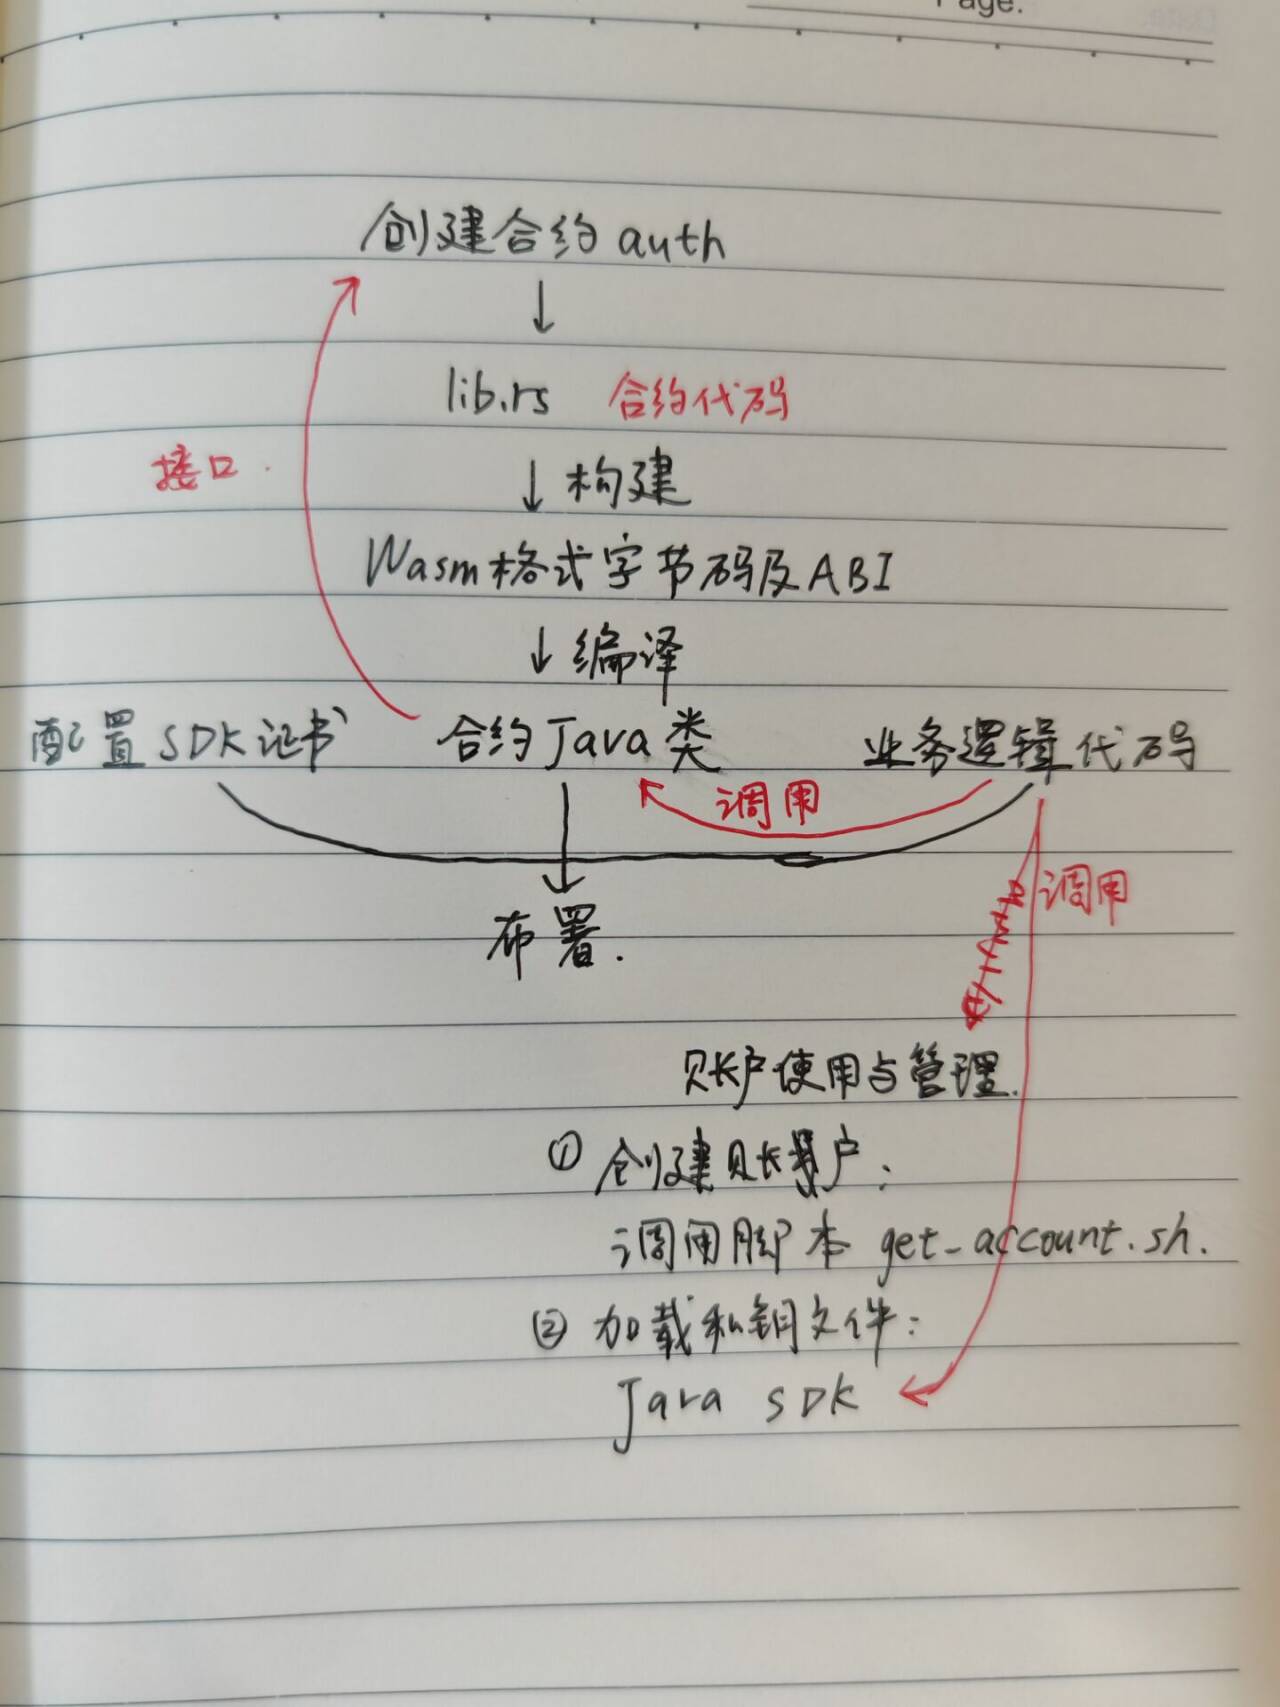 Page.
创建合约 auth
lib.rs 合约代码
接口
构建
Wasm格式字节码及ABI
编译
配置SDK证书 合约Java类 业务逻辑代码
调用
调用
布署.
账户使用与管理.
① 创建账户:
调用脚本 get_account.sh.
② 加载私钥文件:
Java SDK